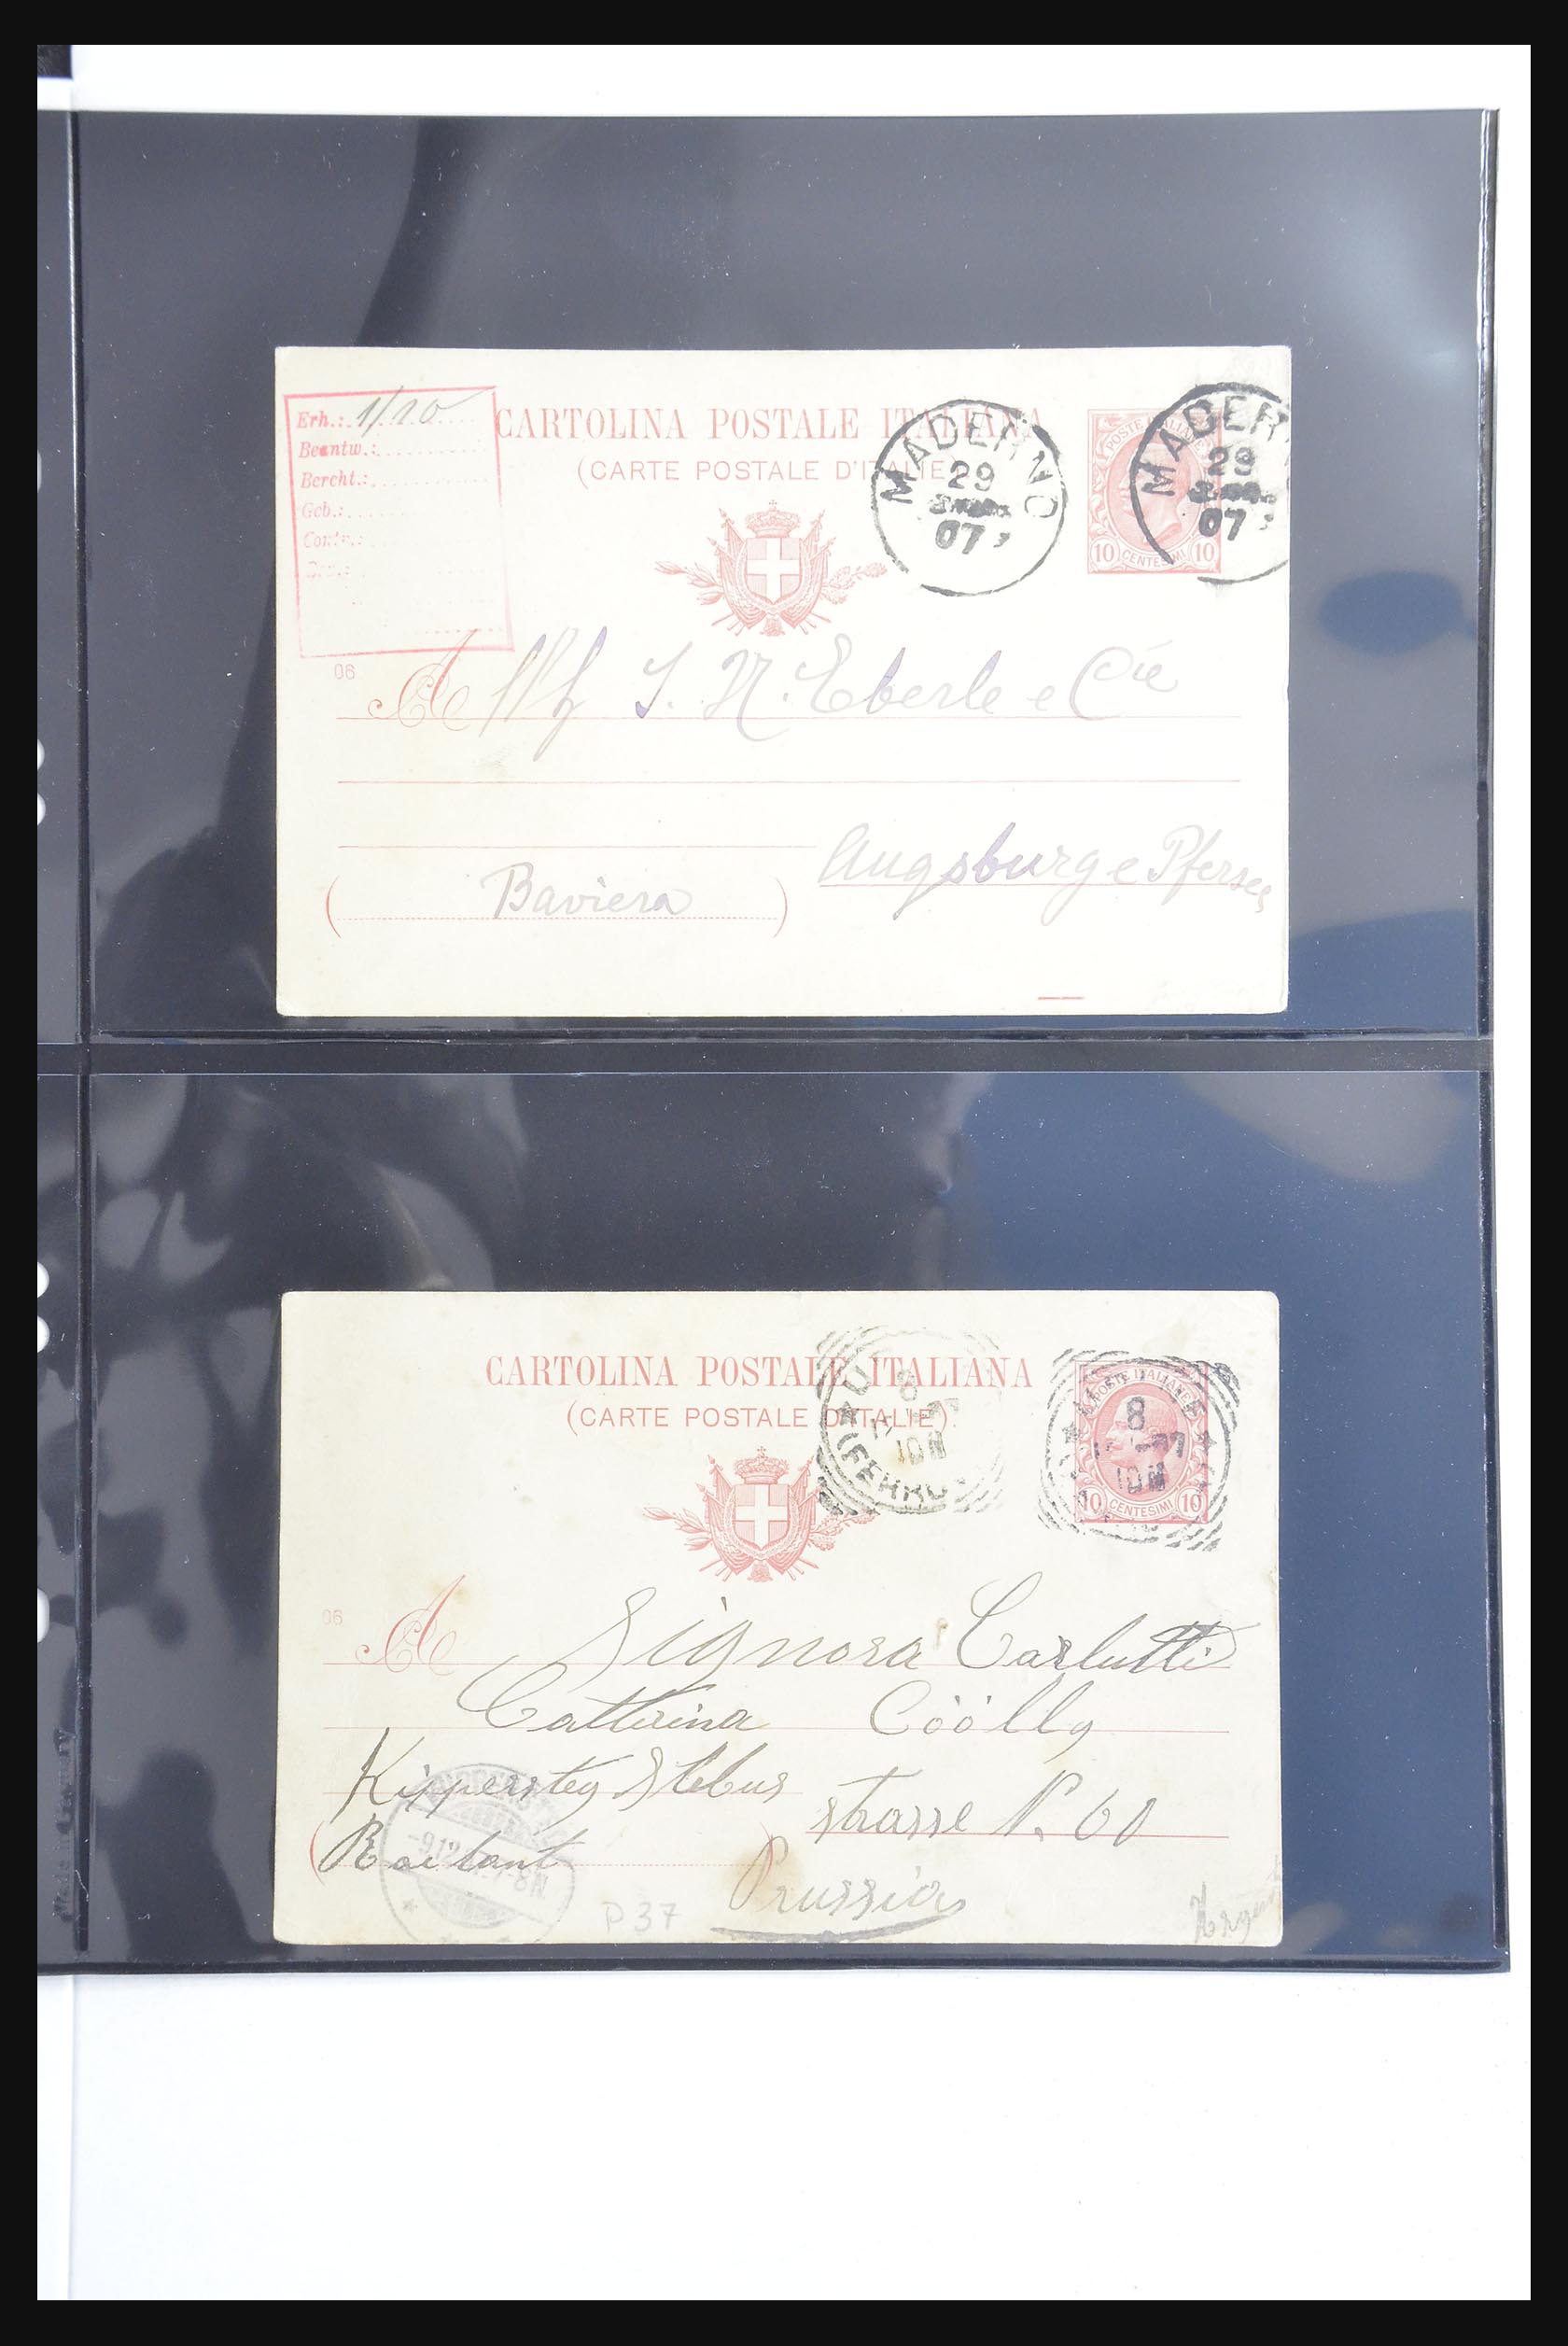 Erh.: 1/10
Beantw.:
Bercht.:
Geb.:
Contr.:
CARTOLINA POSTALE ITALIANA
(CARTE POSTALE D'ITALIE)
MADERNO
29
07
MADER
29
07
POSTE ITALIANE
10 CENTESIMI 10
06
A
J. N. Eberle e Cie
Augsburg e Pfersee
(Baviera)
CARTOLINA POSTALE ITALIANA
(CARTE POSTALE D'ITALIE)
8
10M
(FERRO
POSTE ITALIANE
8
10M
10 CENTESIMI 10
06
A
Signora Carlutti
Catterina Cöölly
Kippersteg
strasse N. 60
Prussia
P 37
Made in Germany